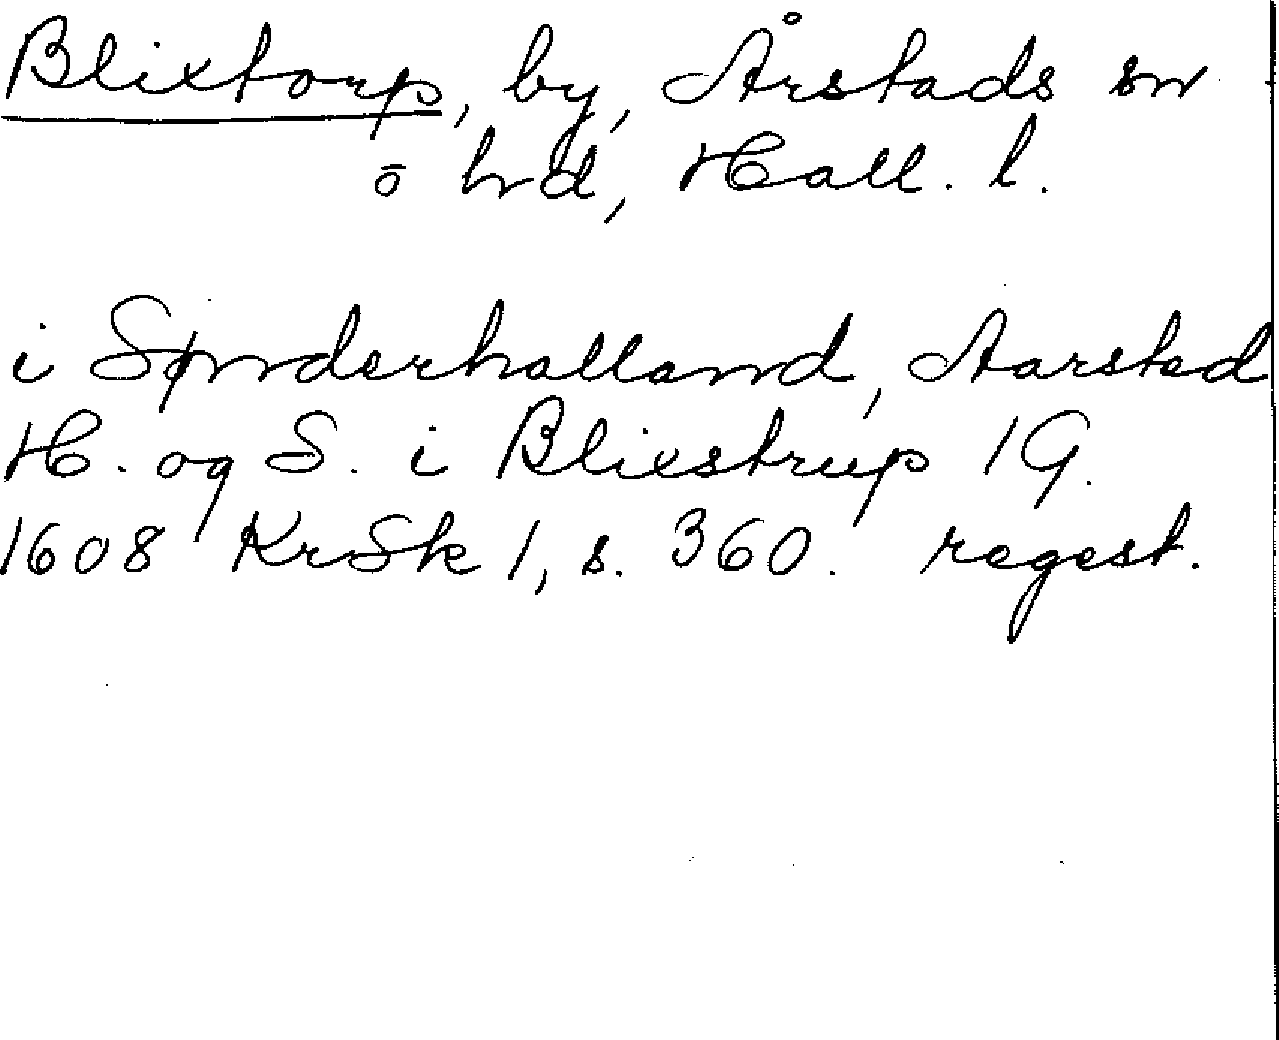 Blixtorp, by, Årstads sn
o hd, Hall. l.
i Sønderhalland, Aarsted
H. og S. i Blixstrup 1 G.
1608 KrSk 1, s. 360. regest.